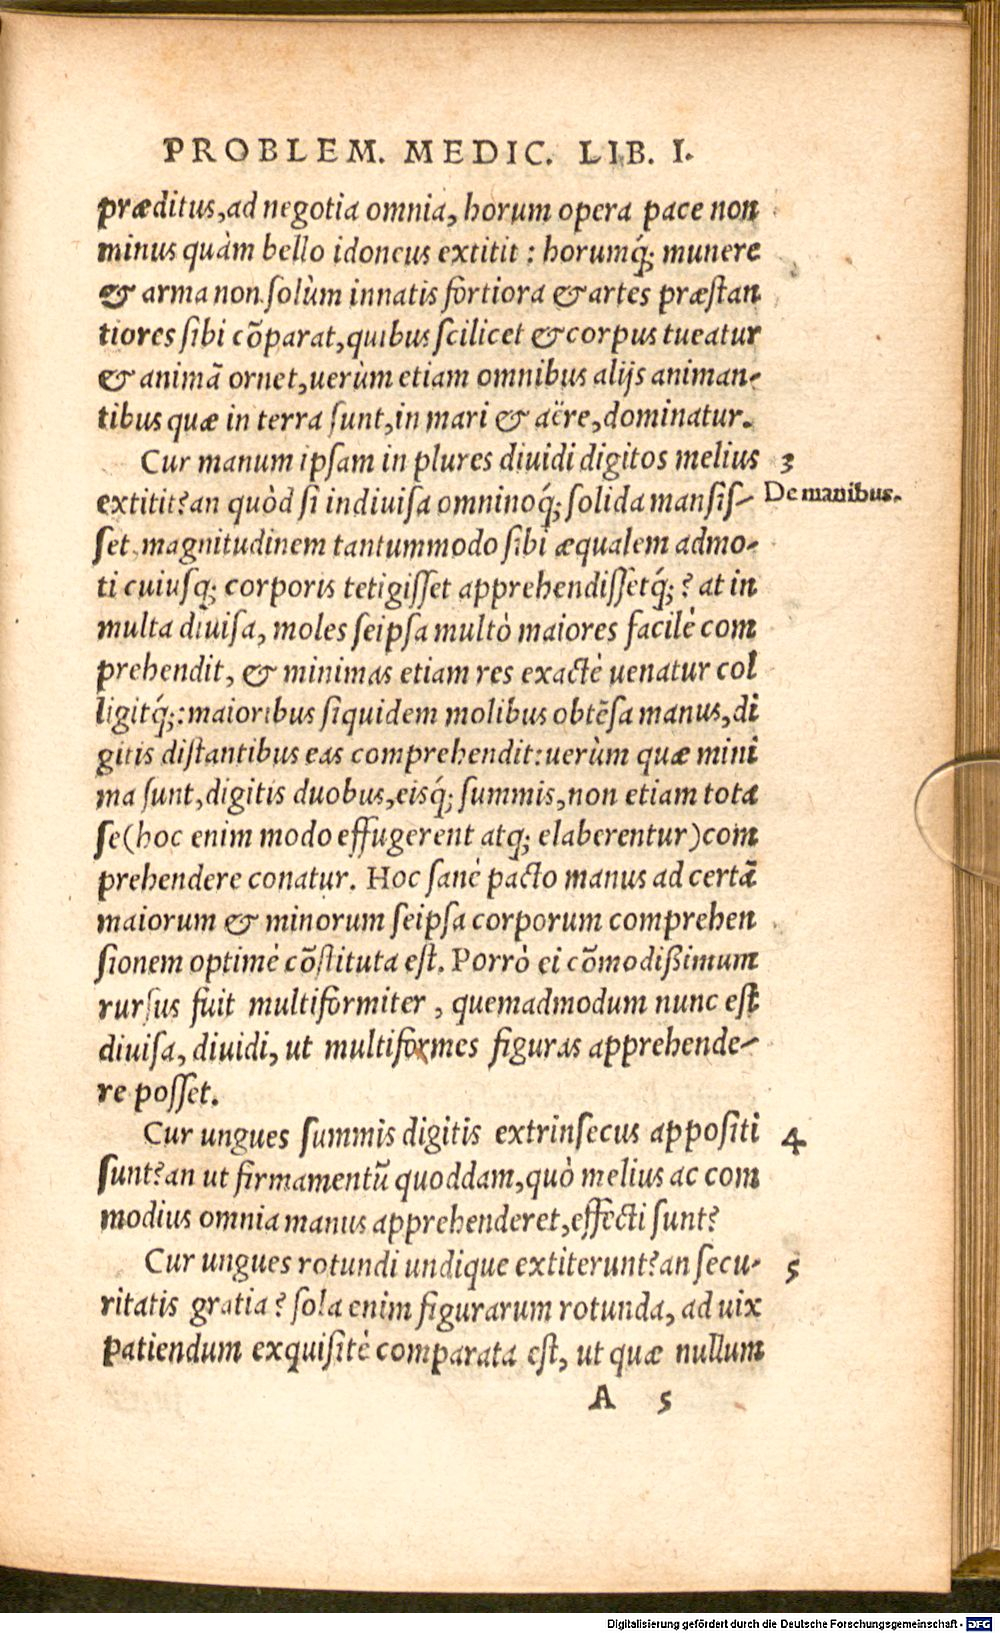 PROBLEM. MEDIC. LIB. I.
præditus, ad negotia omnia, horum opera pace non
minus quàm bello idoneus extitit: horumq́; munere
& arma non solùm innatis fortiora & artes præstan
tiores sibi cõparat, quibus scilicet & corpus tueatur
& animã ornet, uerùm etiam omnibus alijs animan-
tibus quæ in terra sunt, in mari & aëre, dominatur.
Cur manum ipsam in plures diuidi digitos melius 3
extitit? an quòd si indiuisa omninoq́; solida mansis- De manibus.
set, magnitudinem tantummodo sibi æqualem admo-
ti cuiusq; corporis tetigisset apprehendissetq́;? at in
multa diuisa, moles seipsa multò maiores facilè com
prehendit, & minimas etiam res exactè uenatur col
ligitq́;: maioribus siquidem molibus obtẽsa manus, di
gitis distantibus eas comprehendit: uerùm quæ mini
ma sunt, digitis duobus, eisq́; summis, non etiam tota
se (hoc enim modo effugerent atq; elaberentur) com
prehendere conatur. Hoc sanè pacto manus ad certã
maiorum & minorum seipsa corporum comprehen
sionem optimè cõstituta est. Porrò ei cõmodißimum
rursus fuit multiformiter, quemadmodum nunc est
diuisa, diuidi, ut multiformes figuras apprehende-
re posset.
Cur ungues summis digitis extrinsecus appositi 4
sunt? an ut firmamentũ quoddam, quò melius ac com
modius omnia manus apprehenderet, effecti sunt?
Cur ungues rotundi undique extiterunt? an secu- 5
ritatis gratia? sola enim figurarum rotunda, ad uix
patiendum exquisitè comparata est, ut quæ nullum
A 5
Digitalisierung gefördert durch die Deutsche Forschungsgemeinschaft - DFG